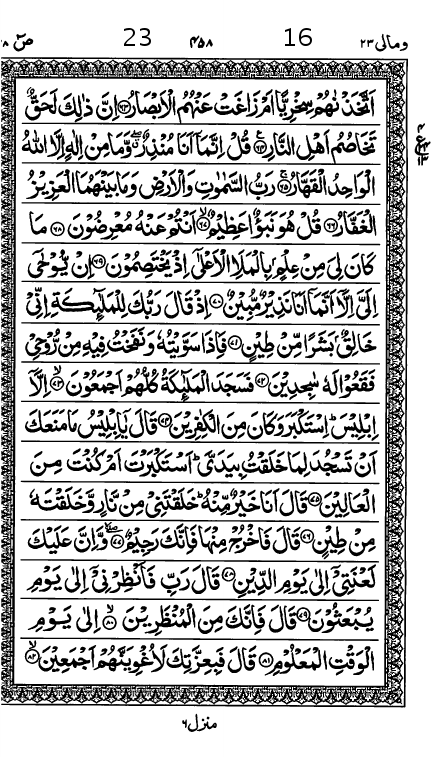 صٓ ٣٨ 23 ٤٥٨ 16 ومالی ٢٣
اَتَّخَذْنٰهُمْ سِخْرِيًّا اَمْ زَاغَتْ عَنْهُمُ الْاَبْصَارُ ﴿٦٣﴾ اِنَّ ذٰلِكَ لَحَقٌّ
تَخَاصُمُ اَهْلِ النَّارِ ﴿٦٤﴾ قُلْ اِنَّمَاۤ اَنَا مُنْذِرٌ ۖ وَّمَا مِنْ اِلٰهٍ اِلَّا اللّٰهُ
الْوَاحِدُ الْقَهَّارُ ﴿٦٥﴾ رَبُّ السَّمٰوٰتِ وَالْاَرْضِ وَمَا بَيْنَهُمَا الْعَزِيْزُ
الْغَفَّارُ ﴿٦٦﴾ قُلْ هُوَ نَبَؤٌا عَظِيْمٌ ﴿٦٧﴾ اَنْتُمْ عَنْهُ مُعْرِضُوْنَ ﴿٦٨﴾ مَا
كَانَ لِىَ مِنْ عِلْمٍۭ بِالْمَلَاِ الْاَعْلٰٓى اِذْ يَخْتَصِمُوْنَ ﴿٦٩﴾ اِنْ يُّوْحٰۤى
اِلَىَّ اِلَّاۤ اَنَّمَاۤ اَنَا نَذِيْرٌ مُّبِيْنٌ ﴿٧٠﴾ اِذْ قَالَ رَبُّكَ لِلْمَلٰٓئِكَةِ اِنِّىْ
خَالِقٌۢ بَشَرًا مِّنْ طِيْنٍ ﴿٧١﴾ فَاِذَا سَوَّيْتُهٗ وَنَفَخْتُ فِيْهِ مِنْ رُّوْحِىْ
فَقَعُوْا لَهٗ سٰجِدِيْنَ ﴿٧٢﴾ فَسَجَدَ الْمَلٰٓئِكَةُ كُلُّهُمْ اَجْمَعُوْنَ ﴿٧٣﴾ اِلَّاۤ
اِبْلِيْسَ ؕ اِسْتَكْبَرَ وَكَانَ مِنَ الْكٰفِرِيْنَ ﴿٧٤﴾ قَالَ يٰۤاِبْلِيْسُ مَا مَنَعَكَ
اَنْ تَسْجُدَ لِمَا خَلَقْتُ بِيَدَىَّ ؕ اَسْتَكْبَرْتَ اَمْ كُنْتَ مِنَ
الْعَالِيْنَ ﴿٧٥﴾ قَالَ اَنَا خَيْرٌ مِّنْهُ ؕ خَلَقْتَنِىْ مِنْ نَّارٍ وَّخَلَقْتَهٗ
مِنْ طِيْنٍ ﴿٧٦﴾ قَالَ فَاخْرُجْ مِنْهَا فَاِنَّكَ رَجِيْمٌ ﴿٧٧﴾ وَّاِنَّ عَلَيْكَ
لَعْنَتِىْۤ اِلٰى يَوْمِ الدِّيْنِ ﴿٧٨﴾ قَالَ رَبِّ فَاَنْظِرْنِىْۤ اِلٰى يَوْمِ
يُبْعَثُوْنَ ﴿٧٩﴾ قَالَ فَاِنَّكَ مِنَ الْمُنْظَرِيْنَ ﴿٨٠﴾ اِلٰى يَوْمِ
الْوَقْتِ الْمَعْلُوْمِ ﴿٨١﴾ قَالَ فَبِعِزَّتِكَ لَاُغْوِيَنَّهُمْ اَجْمَعِيْنَ ﴿٨٢﴾
منزل ٦